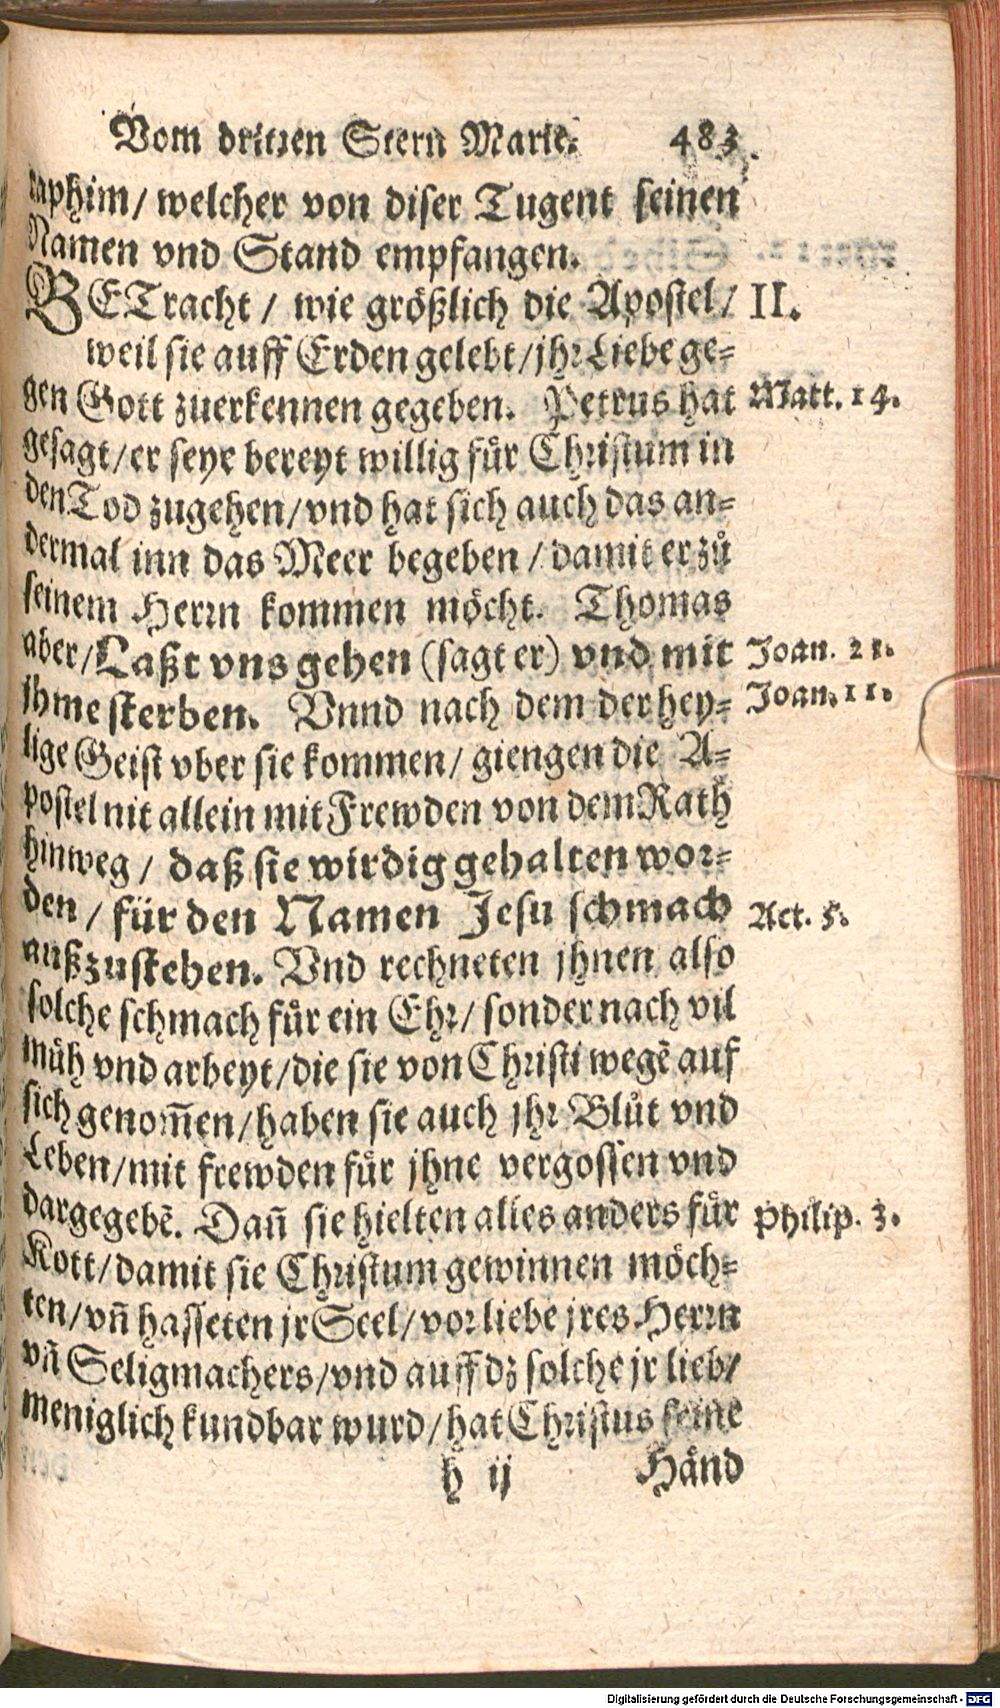 Vom dritten Stern Marie. 483
raphim/ welcher von diser Tugent seinen
Namen vnd Stand empfangen.
BETracht / wie größlich die Apostel/ II.
weil sie auff Erden gelebt/jhr Liebe ge-
gen Gott zuerkennen gegeben. Petrus hat Matt. 14.
gesagt/er seye bereyt willig fůr Christum in
den Tod zugehen/vnd hat sich auch das an-
dermal inn das Meer begeben / damit er zů
seinem Herrn kommen möcht. Thomas
aber/Laßt vns gehen (sagt er) vnd mit Joan. 21.
jhme sterben. Vnnd nach dem der hey- Joan. 11.
lige Geist vber sie kommen/ giengen die A-
postel nit allein mit Frewden von dem Rath
hinweg / daß sie wirdig gehalten wor-
den / für den Namen Jesu schmach Act. 5.
außzustehen. Vnd rechneten jhnen also
solche schmach fůr ein Ehr/ sonder nach vil
můh vnd arbeyt/die sie von Christi wegē auf
sich genom̄en/haben sie auch jhr Blůt vnd
Leben/mit frewden fůr jhne vergossen vnd
dargegebē. Dan̄ sie hielten alles anders fůr Philip. 3.
Kott/damit sie Christum gewinnen möch-
ten/vn̄ hasseten jr Seel/vor liebe jres Herrn
vn̄ Seligmachers/vnd auff dz solche jr lieb/
meniglich kundbar wurd/hat Christus seine
h ij Händ
Digitalisierung gefördert durch die Deutsche Forschungsgemeinschaft - DFG